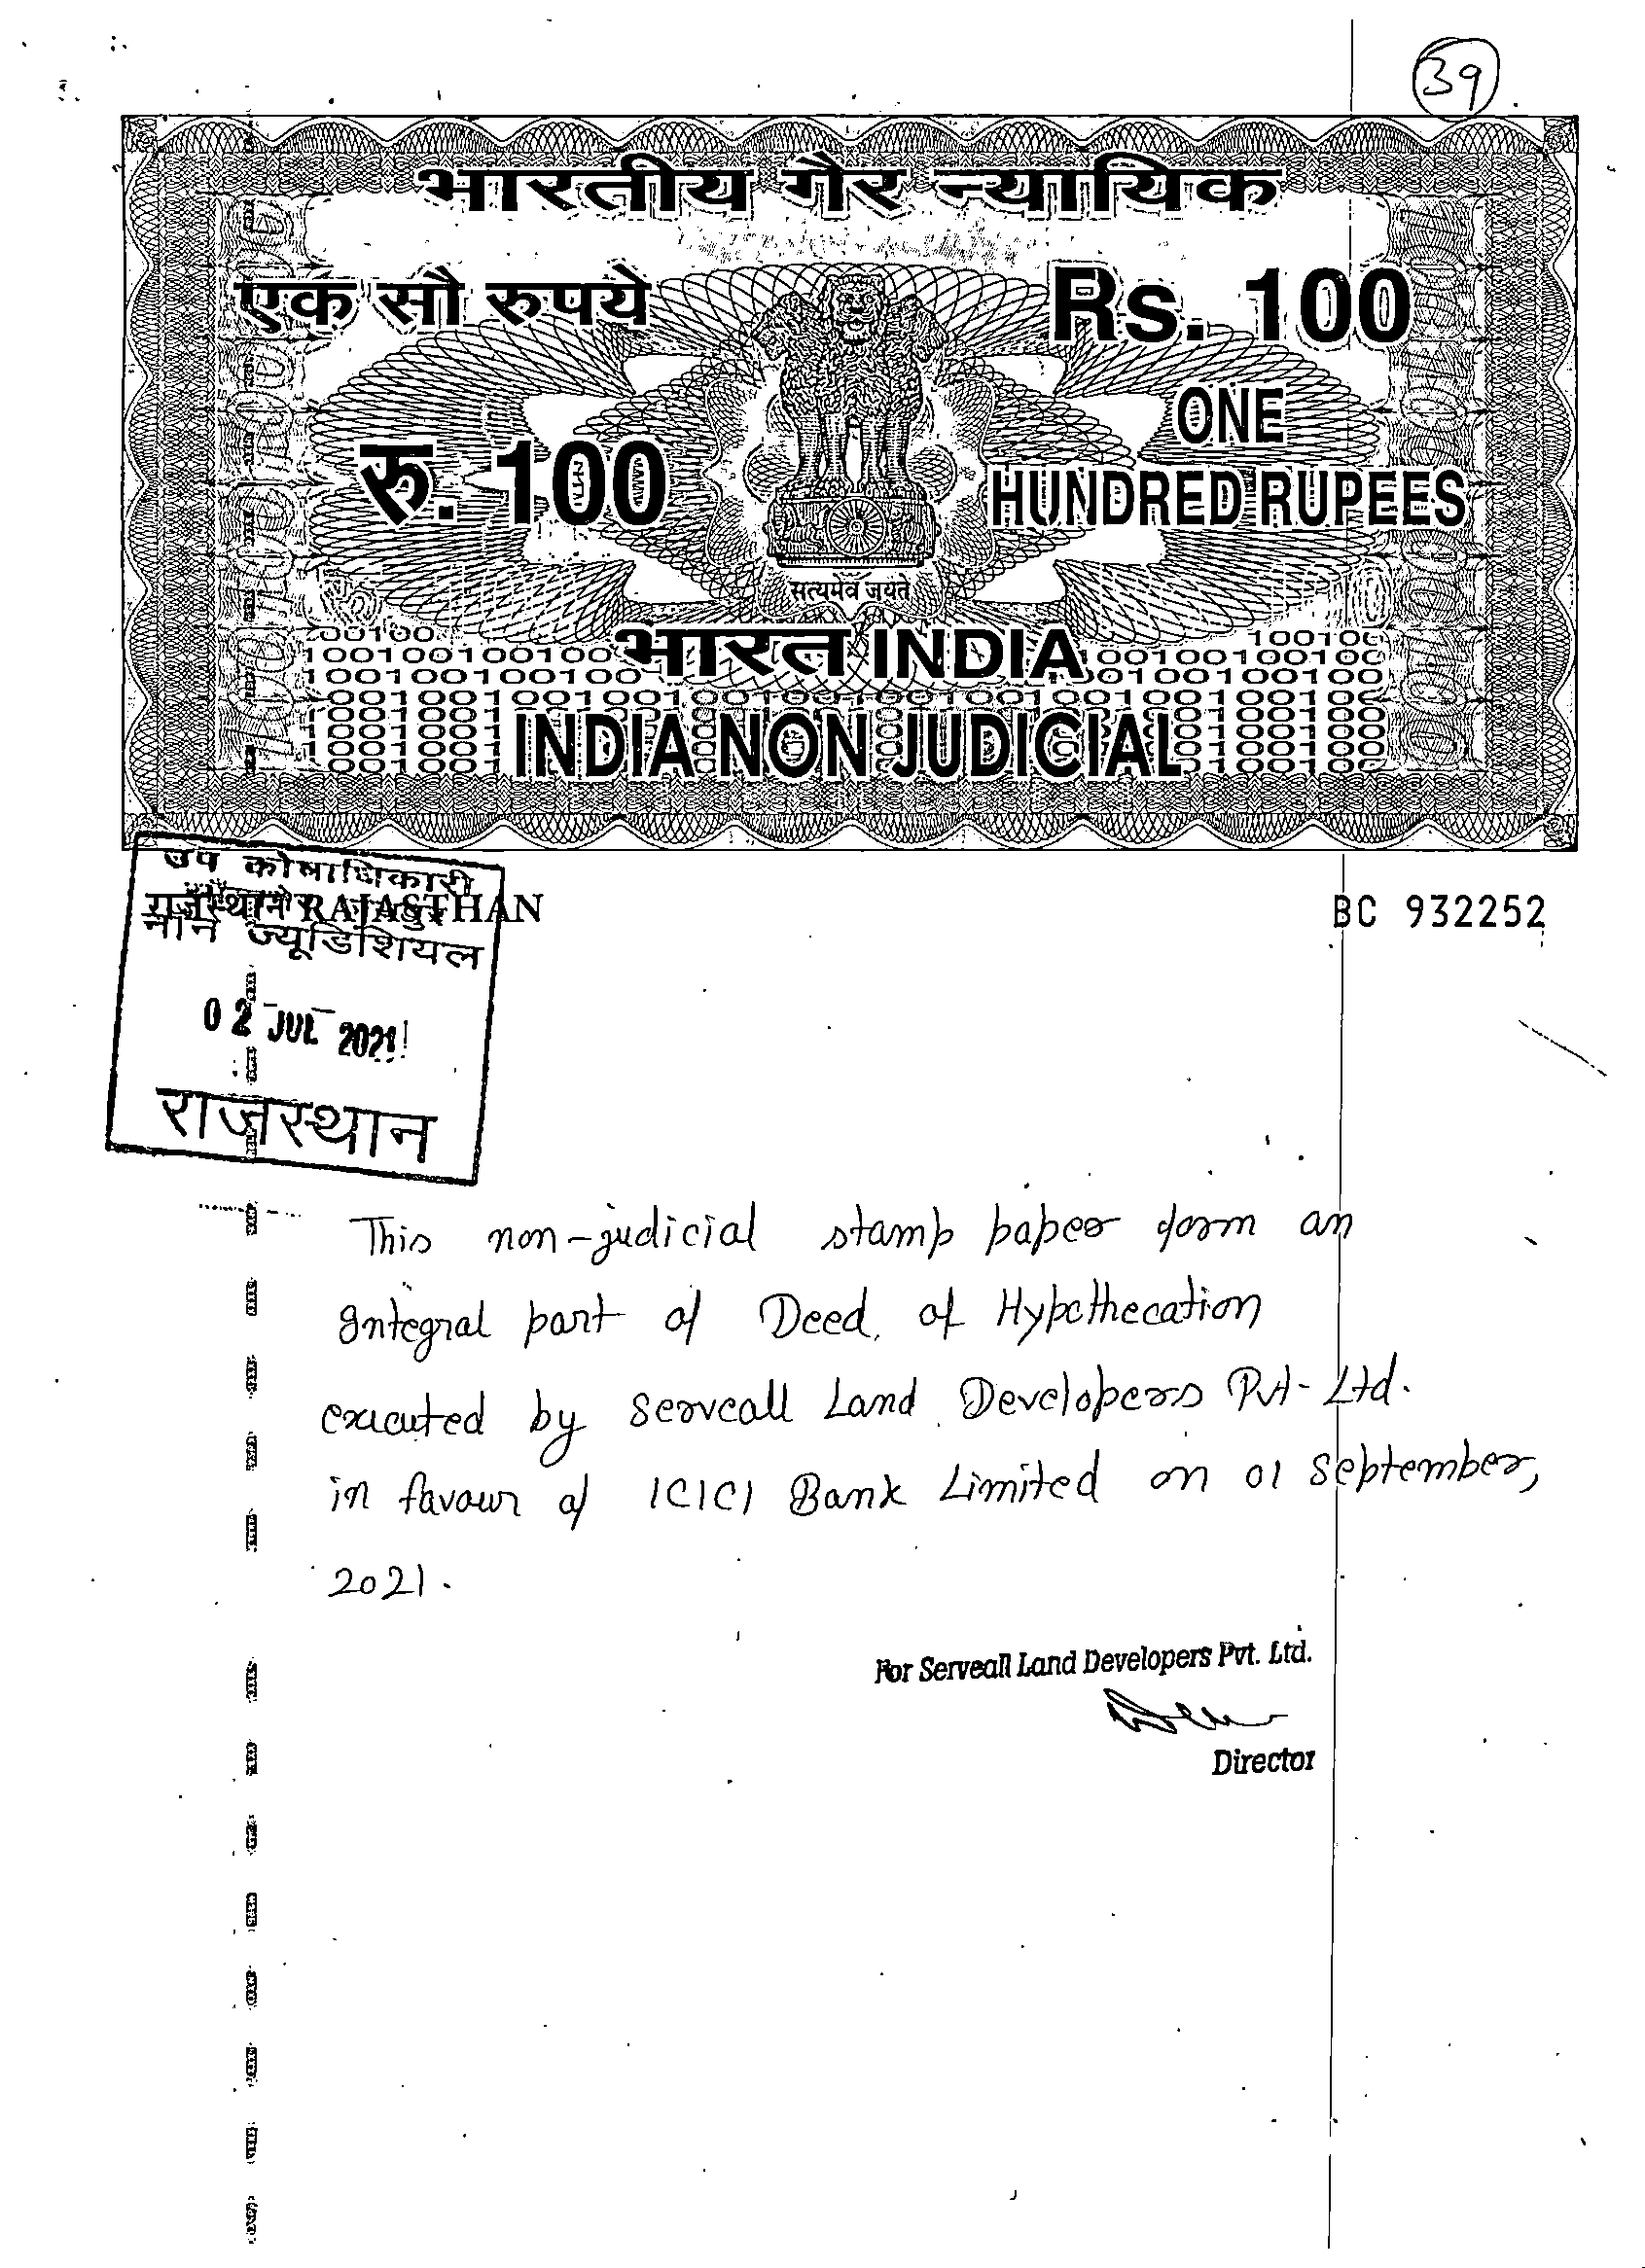 39
भारतीय गैर न्यायिक
एक सौ रुपये
Rs. 100
रु. 100
ONE
HUNDRED RUPEES
सत्यमेव जयते
भारत INDIA
INDIA NON JUDICIAL
उप कोषाधिकारी
राजस्थान RAJASTHAN
BC 932252
नान ज्यूडिशियल
02 JUL 2021
राजस्थान
This non-judicial stamp paper form an
Integral part of Deed of Hypothecation
executed by Serveall Land Developers Pvt- Ltd.
in favour of ICICI Bank Limited on 01 September,
2021.
For Serveall Land Developers Pvt. Ltd.
Director